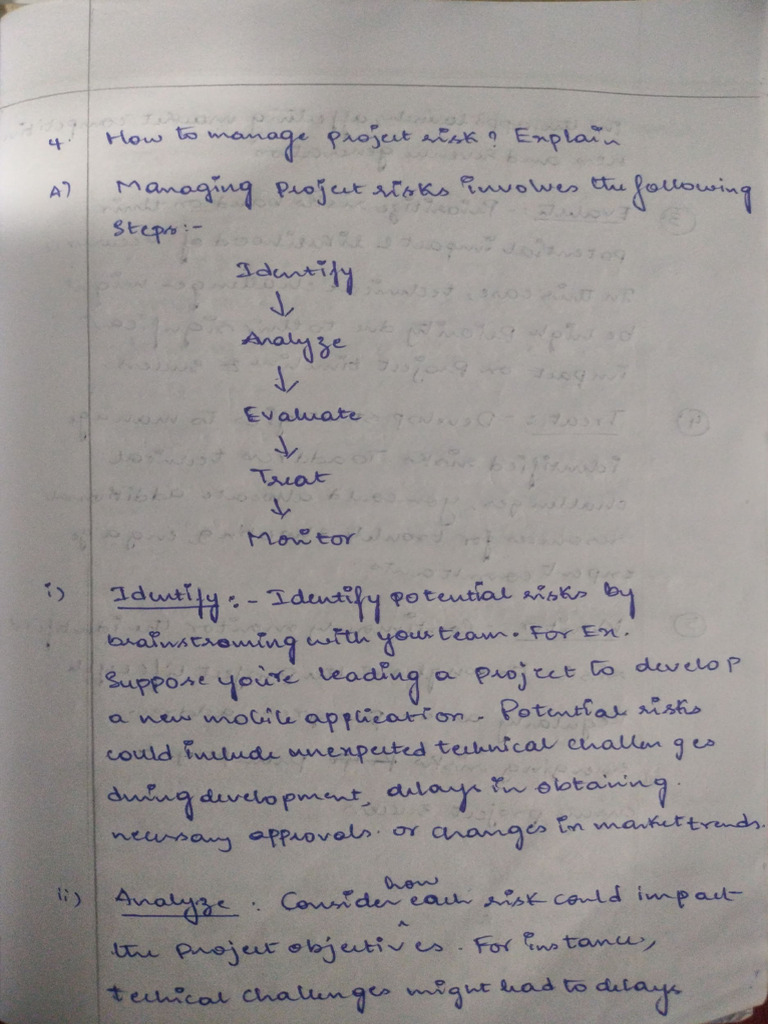 4. How to manage project risk? Explain
A) Managing Project risks involves the following
Steps:-
Identify
↓
Analyze
↓
Evaluate
↓
Treat
↓
Monitor
i) Identify :- Identify potential risks by
brainstroming with your team. For Ex.
Suppose you're leading a project to develop
a new mobile application. Potential risks
could include unexpected technical challenges
during development, delays in obtaining
necessary approvals. or changes in market trends.
ii) Analyze : Consider how each risk could impact
the project objectives. For instance,
techical challenges might lead to delays